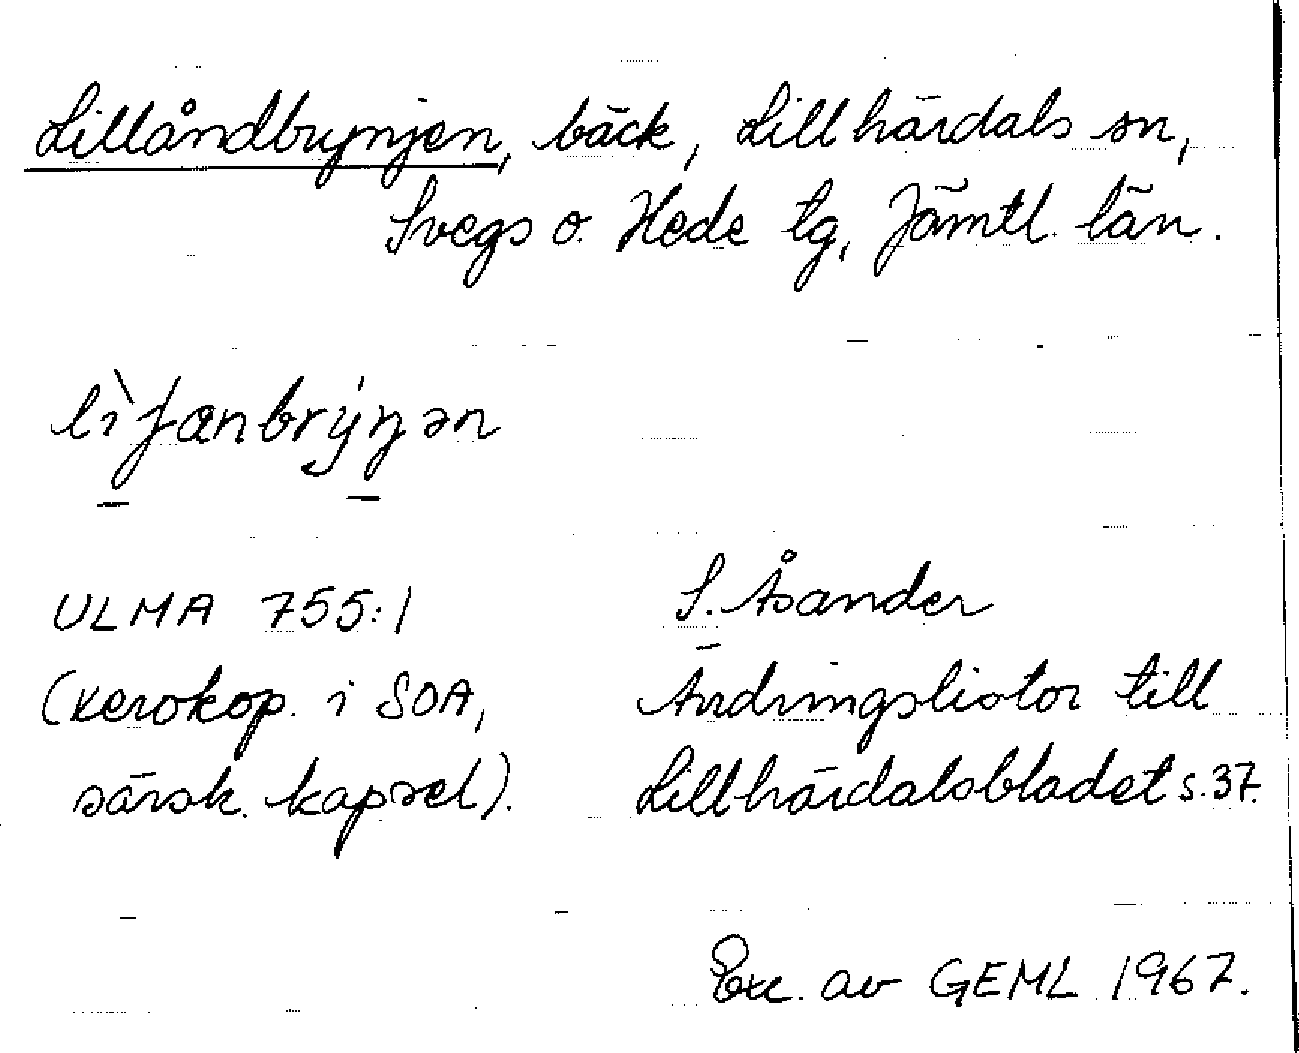 Lillåndbrynjen, bäck, Lillhärdals sn,
Svegs o. Hede tg, Jämtl. län.
ULMA 755:1
(xerokop. i SOA,
särsk. kapsel).
S. Åsander
Ändringslistor till
Lillhärdalsbladet s. 37.
Exc. av GEML 1967.